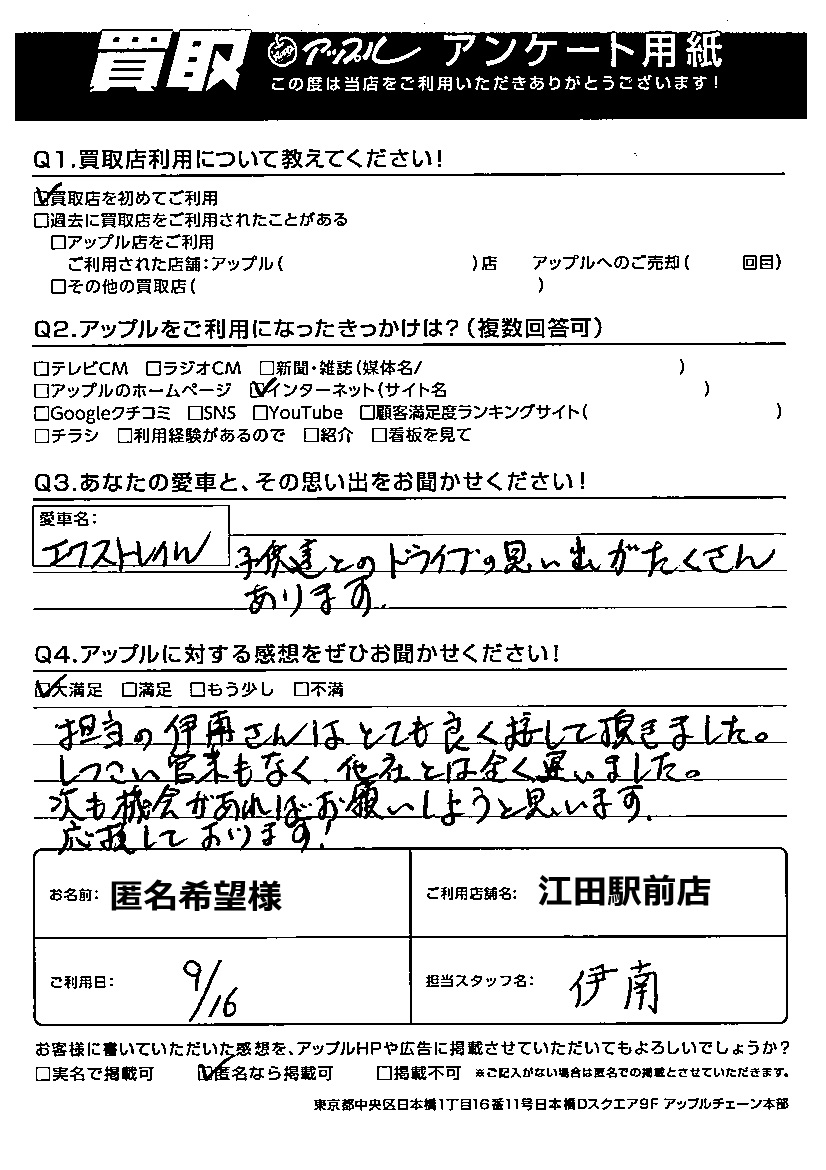 買取 アップル アンケート用紙
この度は当店をご利用いただきありがとうございます!
Q1.買取店利用について教えてください!
☑買取店を初めてご利用
□過去に買取店をご利用されたことがある
□アップル店をご利用
ご利用された店舗:アップル( )店 アップルへのご売却( 回目)
□その他の買取店( )
Q2.アップルをご利用になったきっかけは?(複数回答可)
□テレビCM □ラジオCM □新聞・雑誌(媒体名/ )
□アップルのホームページ ☑インターネット(サイト名 )
□Googleクチコミ □SNS □YouTube □顧客満足度ランキングサイト( )
□チラシ □利用経験があるので □紹介 □看板を見て
Q3.あなたの愛車と、その思い出をお聞かせください!
愛車名:
エクストレイル 子供達とのドライブの思い出がたくさん
あります.
Q4.アップルに対する感想をぜひお聞かせください!
☑大満足 □満足 □もう少し □不満
担当の伊南さんはとても良く接して頂きました。
しつこい営業もなく、他社とは全く違いました。
次も機会があればお願いしようと思います.
応援しております!
お名前: 匿名希望様 ご利用店舗名: 江田駅前店
ご利用日: 9/16 担当スタッフ名: 伊南
お客様に書いていただいた感想を、アップルHPや広告に掲載させていただいてもよろしいでしょうか?
□実名で掲載可 ☑匿名なら掲載可 □掲載不可 ※ご記入がない場合は匿名での掲載とさせていただきます。
東京都中央区日本橋1丁目16番11号日本橋Dスクエア9F アップルチェーン本部